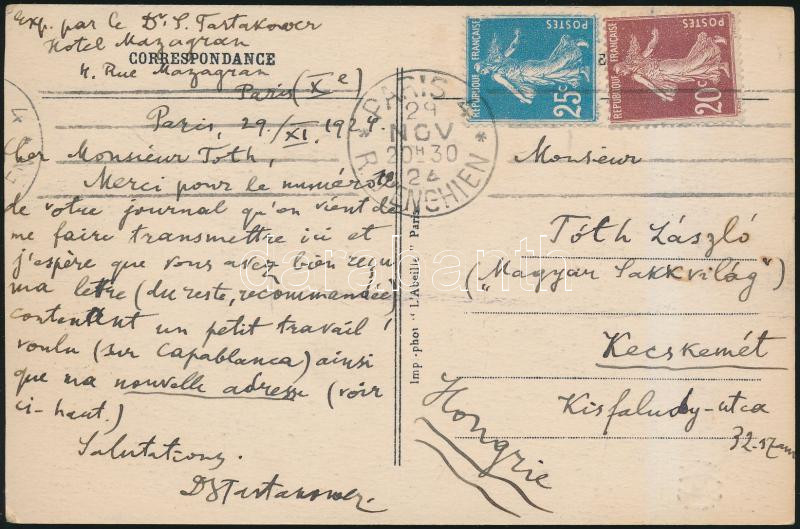 Exp. par le Dr. S. Tartakower
Hotel Mazagran
CORRESPONDANCE
4. Rue Mazagran
Paris (Xe)
Paris, 29./XI. 1924
Cher Monsieur Toth,
Merci pour le numéro
de votre journal qu'on vient de
me faire transmettre ici et
j'espère que vous avez bien reçu
ma lettre (du reste, recommandée)
contentent un petit travail
voulu (sur Capablanca) ainsi
que ma nouvelle adresse (voir
ci-haut.)
Salutations.
DSTartakower
Imp.-phot "L'Abeille" Paris
POSTES
REPUBLIQUE FRANÇAISE
25c
POSTES
REPUBLIQUE FRANÇAISE
20c
PARIS 4
29
NOV
20H30
24
R. D'ENGHIEN
Monsieur
Tóth László
("Magyar Sakkvilág")
Kecskemét
Kisfaludy-utca
32-szám
Hongrie
darabanth